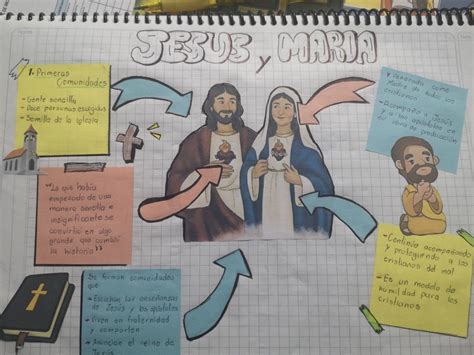 JESUS y MARIA
1. Primeras
Comunidades
- Gente sencilla
- Doce personas escogidas
- Semilla de la iglesia
"Lo que había
empezado de una
manera sencilla e
insignificante se
convirtió en algo
grande que cambió
la historia"
Se forman comunidades
que
- Escuchan las enseñanzas
de Jesús y los apóstoles
- Viven en fraternidad
y comparten
- Anuncian el reino de
Jesús
Venerada como
Madre de todos los
cristianos
- Acompaña a Jesús
y a los apóstoles en
su obra de predicación
- Continúa acompañando
y protegiendo a los
cristianos del mal
- Es un modelo de
humildad para los
cristianos